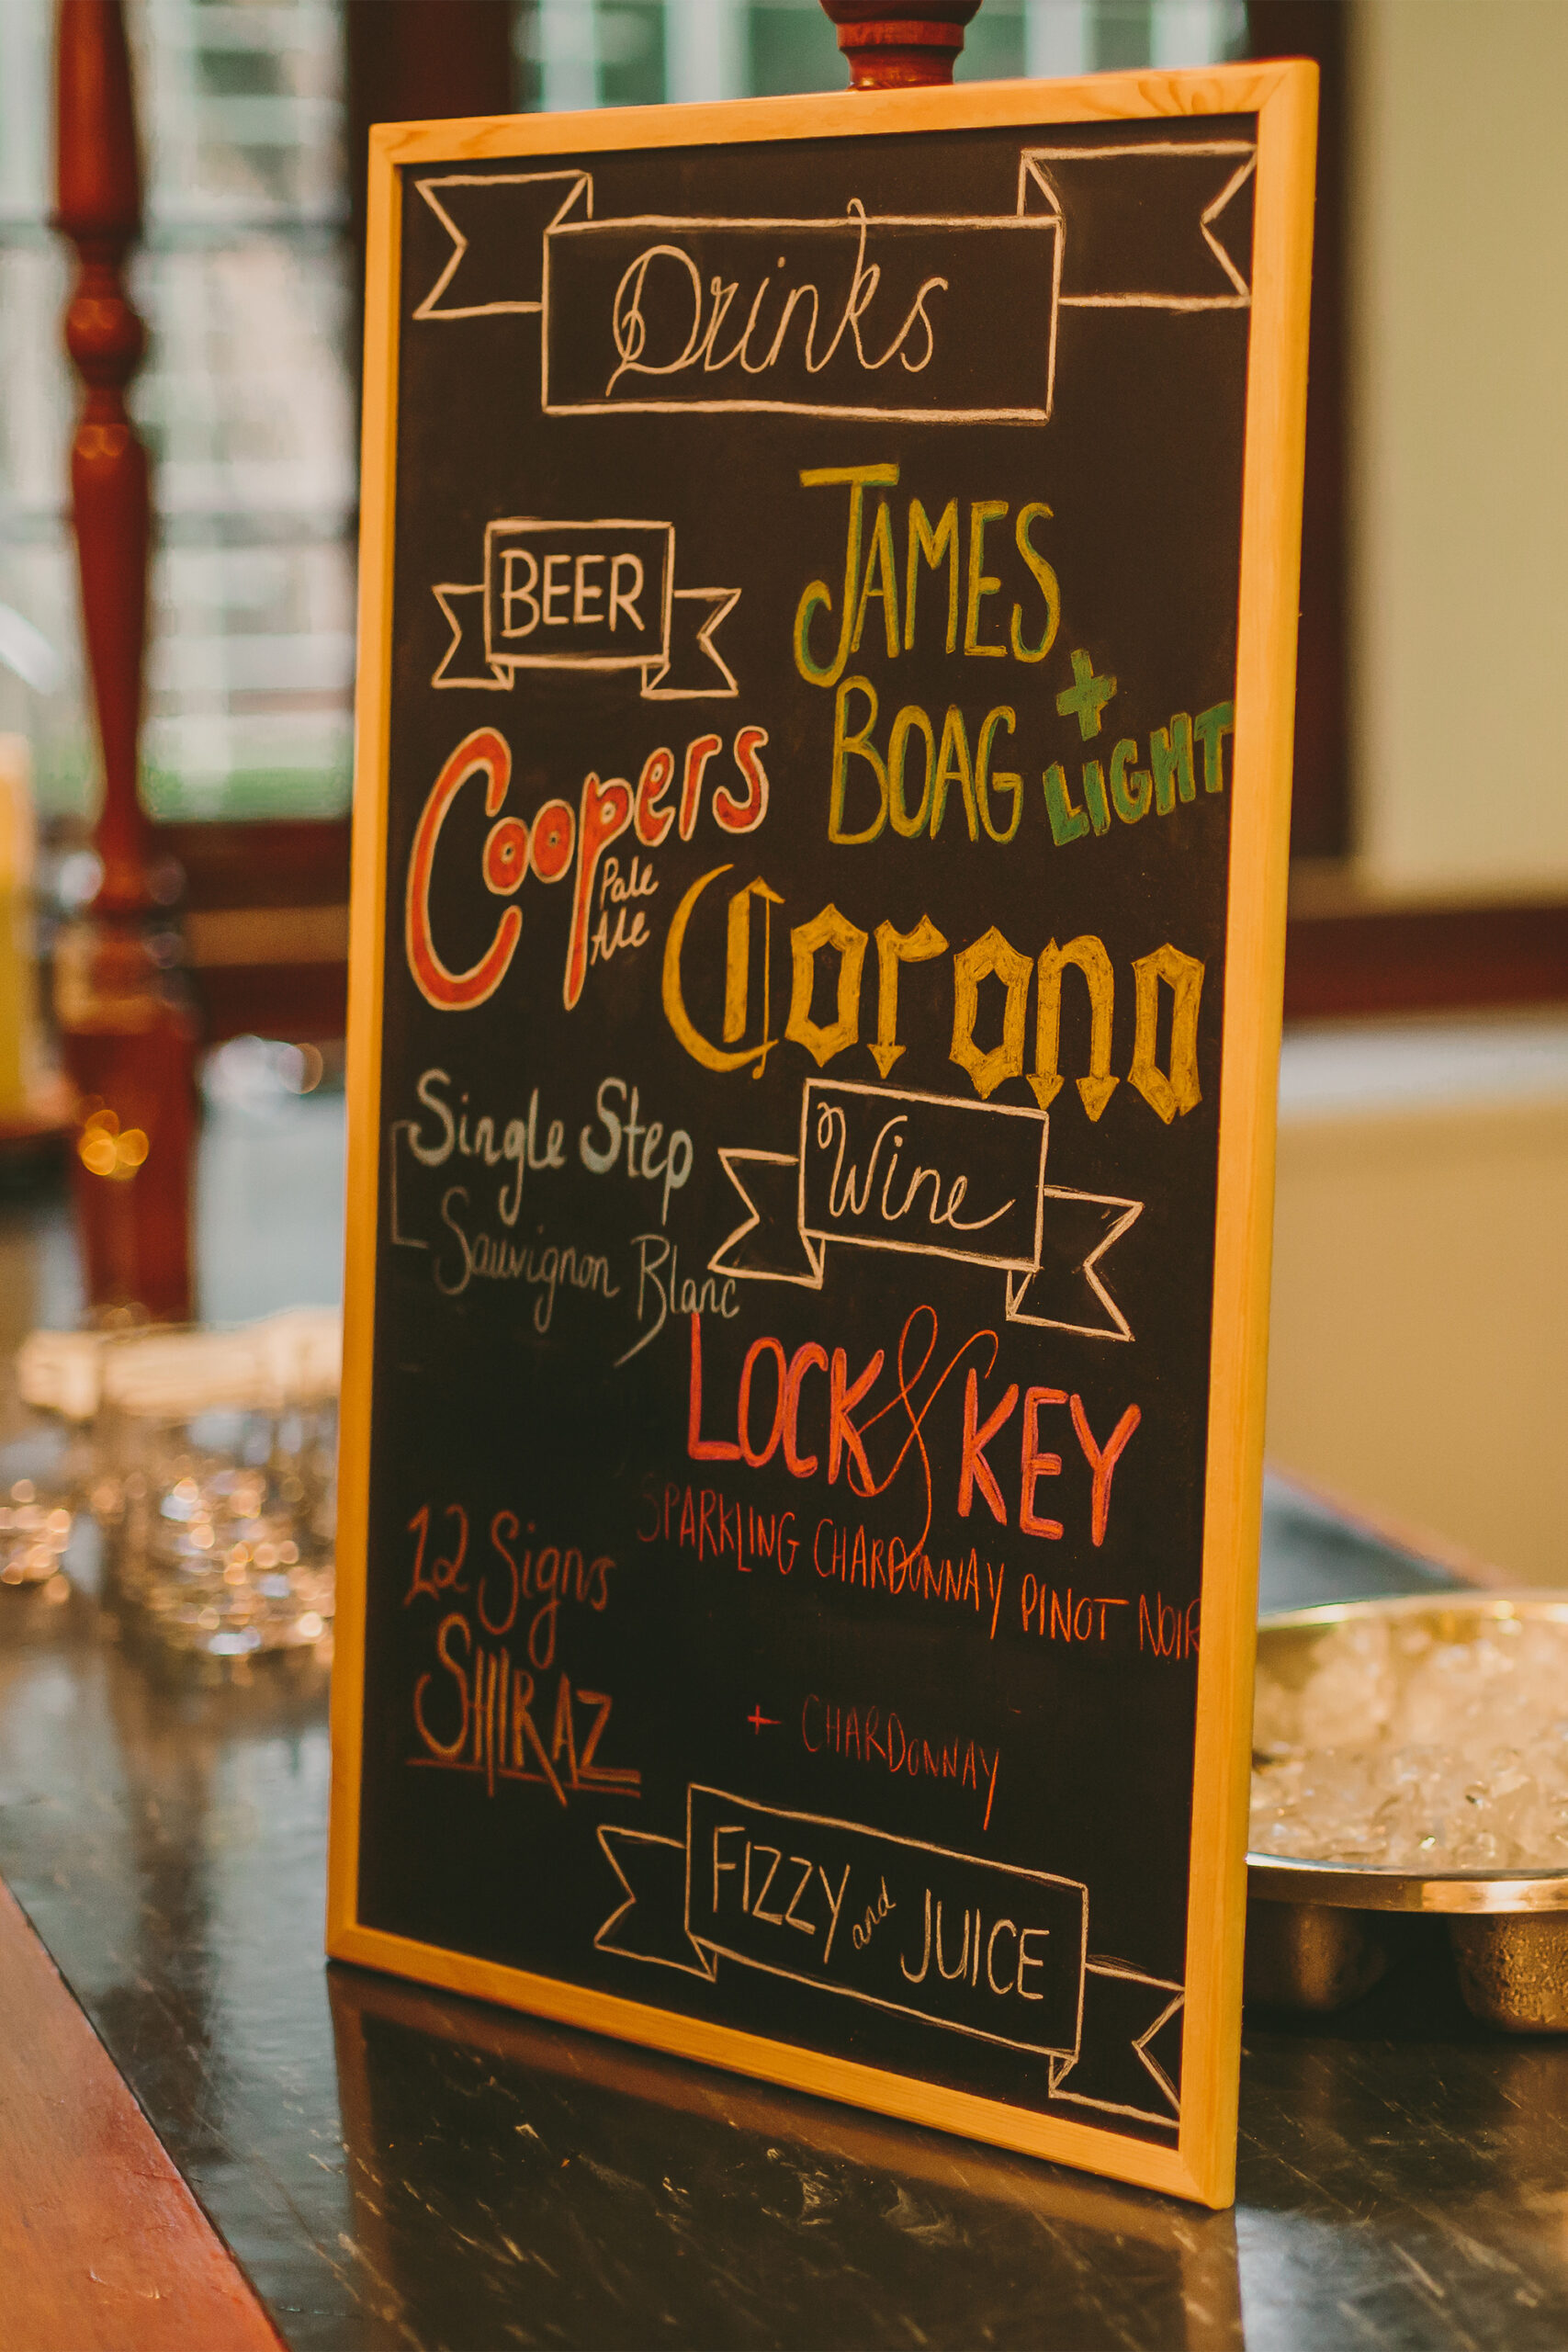 Drinks
BEER
JAMES
BOAG
+
LIGHT
Coopers
Pale
Ale
Corona
Single Step
Sauvignon Blanc
Wine
LOCK & KEY
SPARKLING CHARDONNAY PINOT NOIR
+ CHARDONNAY
12 Signs
SHIRAZ
FIZZY and JUICE